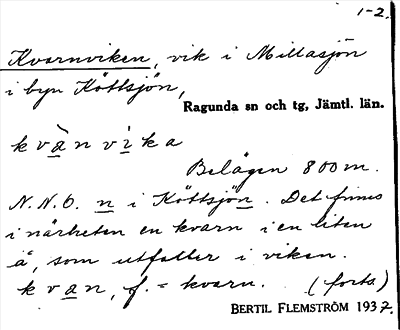 1-2.
Kvarnviken, vik i Mellasjön
i byn Köttsjön,
Ragunda sn och tg, Jämtl. län.
kvànvika
Belägen 800 m.
N.N.O. n i Köttsjön. Det finns
i närheten en kvarn i en liten
å, som utfaller i viken.
kvan, f. = kvarn. (forts.)
BERTIL FLEMSTRÖM 1937.